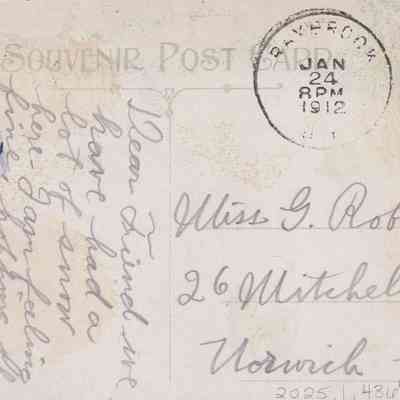 SOUVENIR POST CARD
JAN
24
8 PM
1912
Dear Friend we
have had a
lot of snow
here I am faling
fine
Miss G. Rob
26 Mitchel
Norwich
2025.1.436